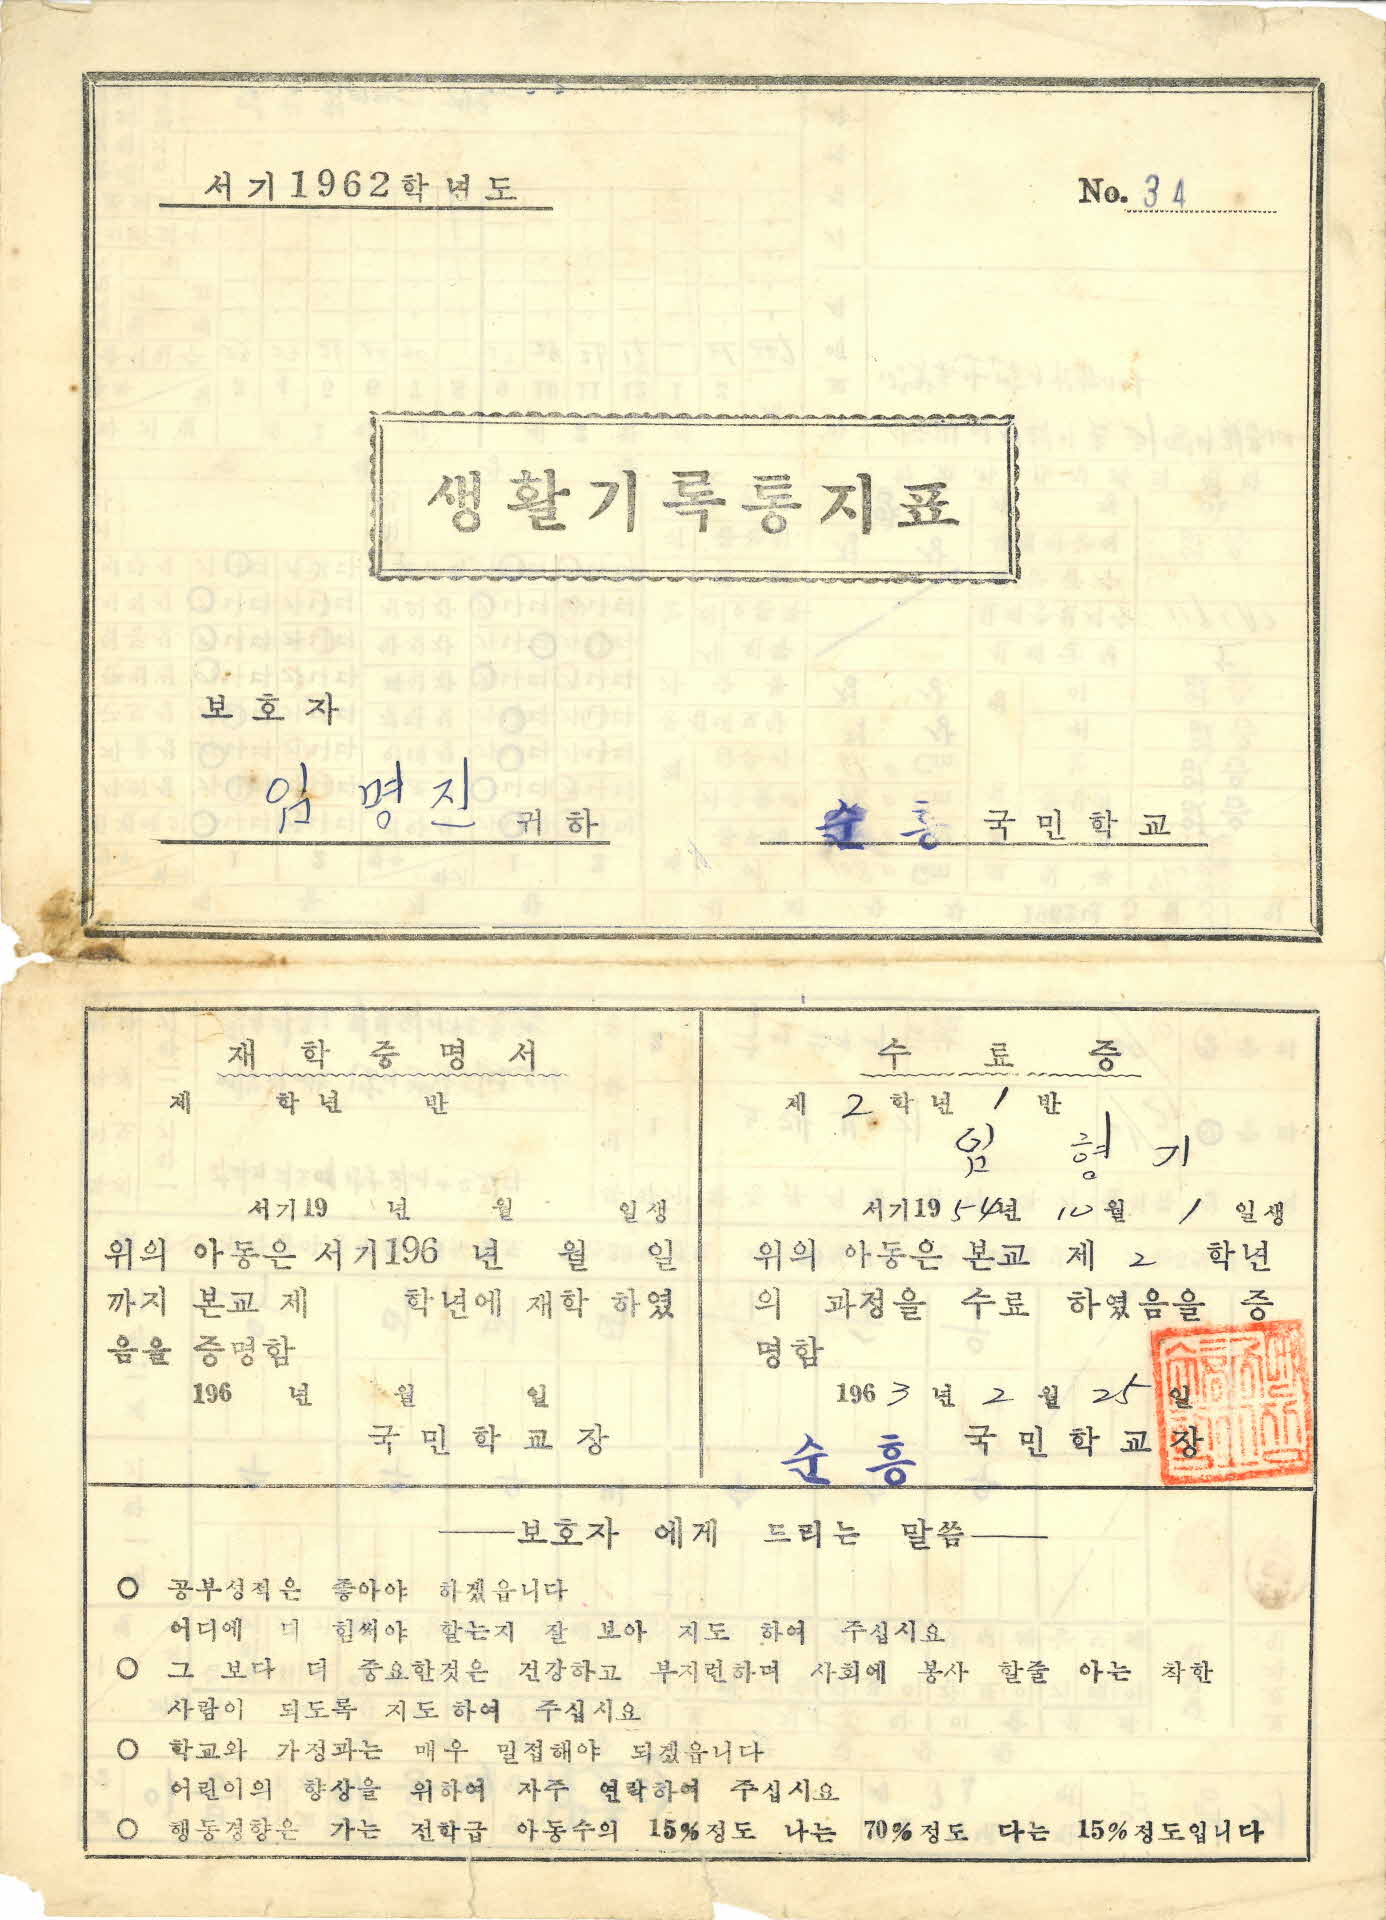 서기1962학년도
No. 34
생활기록통지표
보호자
임명진 귀하
순흥 국민학교
재학증명서
제 학년 반
서기19 년 월 일생
위의 아동은 서기196 년 월 일
까지 본교 제 학년에 재학 하였
음을 증명함
196 년 월 일
국민학교장
수료증
제 2학년 1반
임형기
서기1954년 10월 1일생
위의 아동은 본교 제 2 학년
의 과정을 수료 하였음을 증
명함
1963년 2월 25일
순흥 국민학교장
보호자 에게 드리는 말씀
○ 공부성적은 좋아야 하겠읍니다
어디에 더 힘써야 할는지 잘 보아 지도 하여 주십시요
○ 그 보다 더 중요한것은 건강하고 부지런하며 사회에 봉사 할줄 아는 착한
사람이 되도록 지도하여 주십시요
○ 학교와 가정과는 매우 밀접해야 되겠읍니다
어린이의 향상을 위하여 자주 연락하여 주십시요
○ 행동경향은 가는 전학급 아동수의 15%정도 나는 70%정도 다는 15%정도입니다